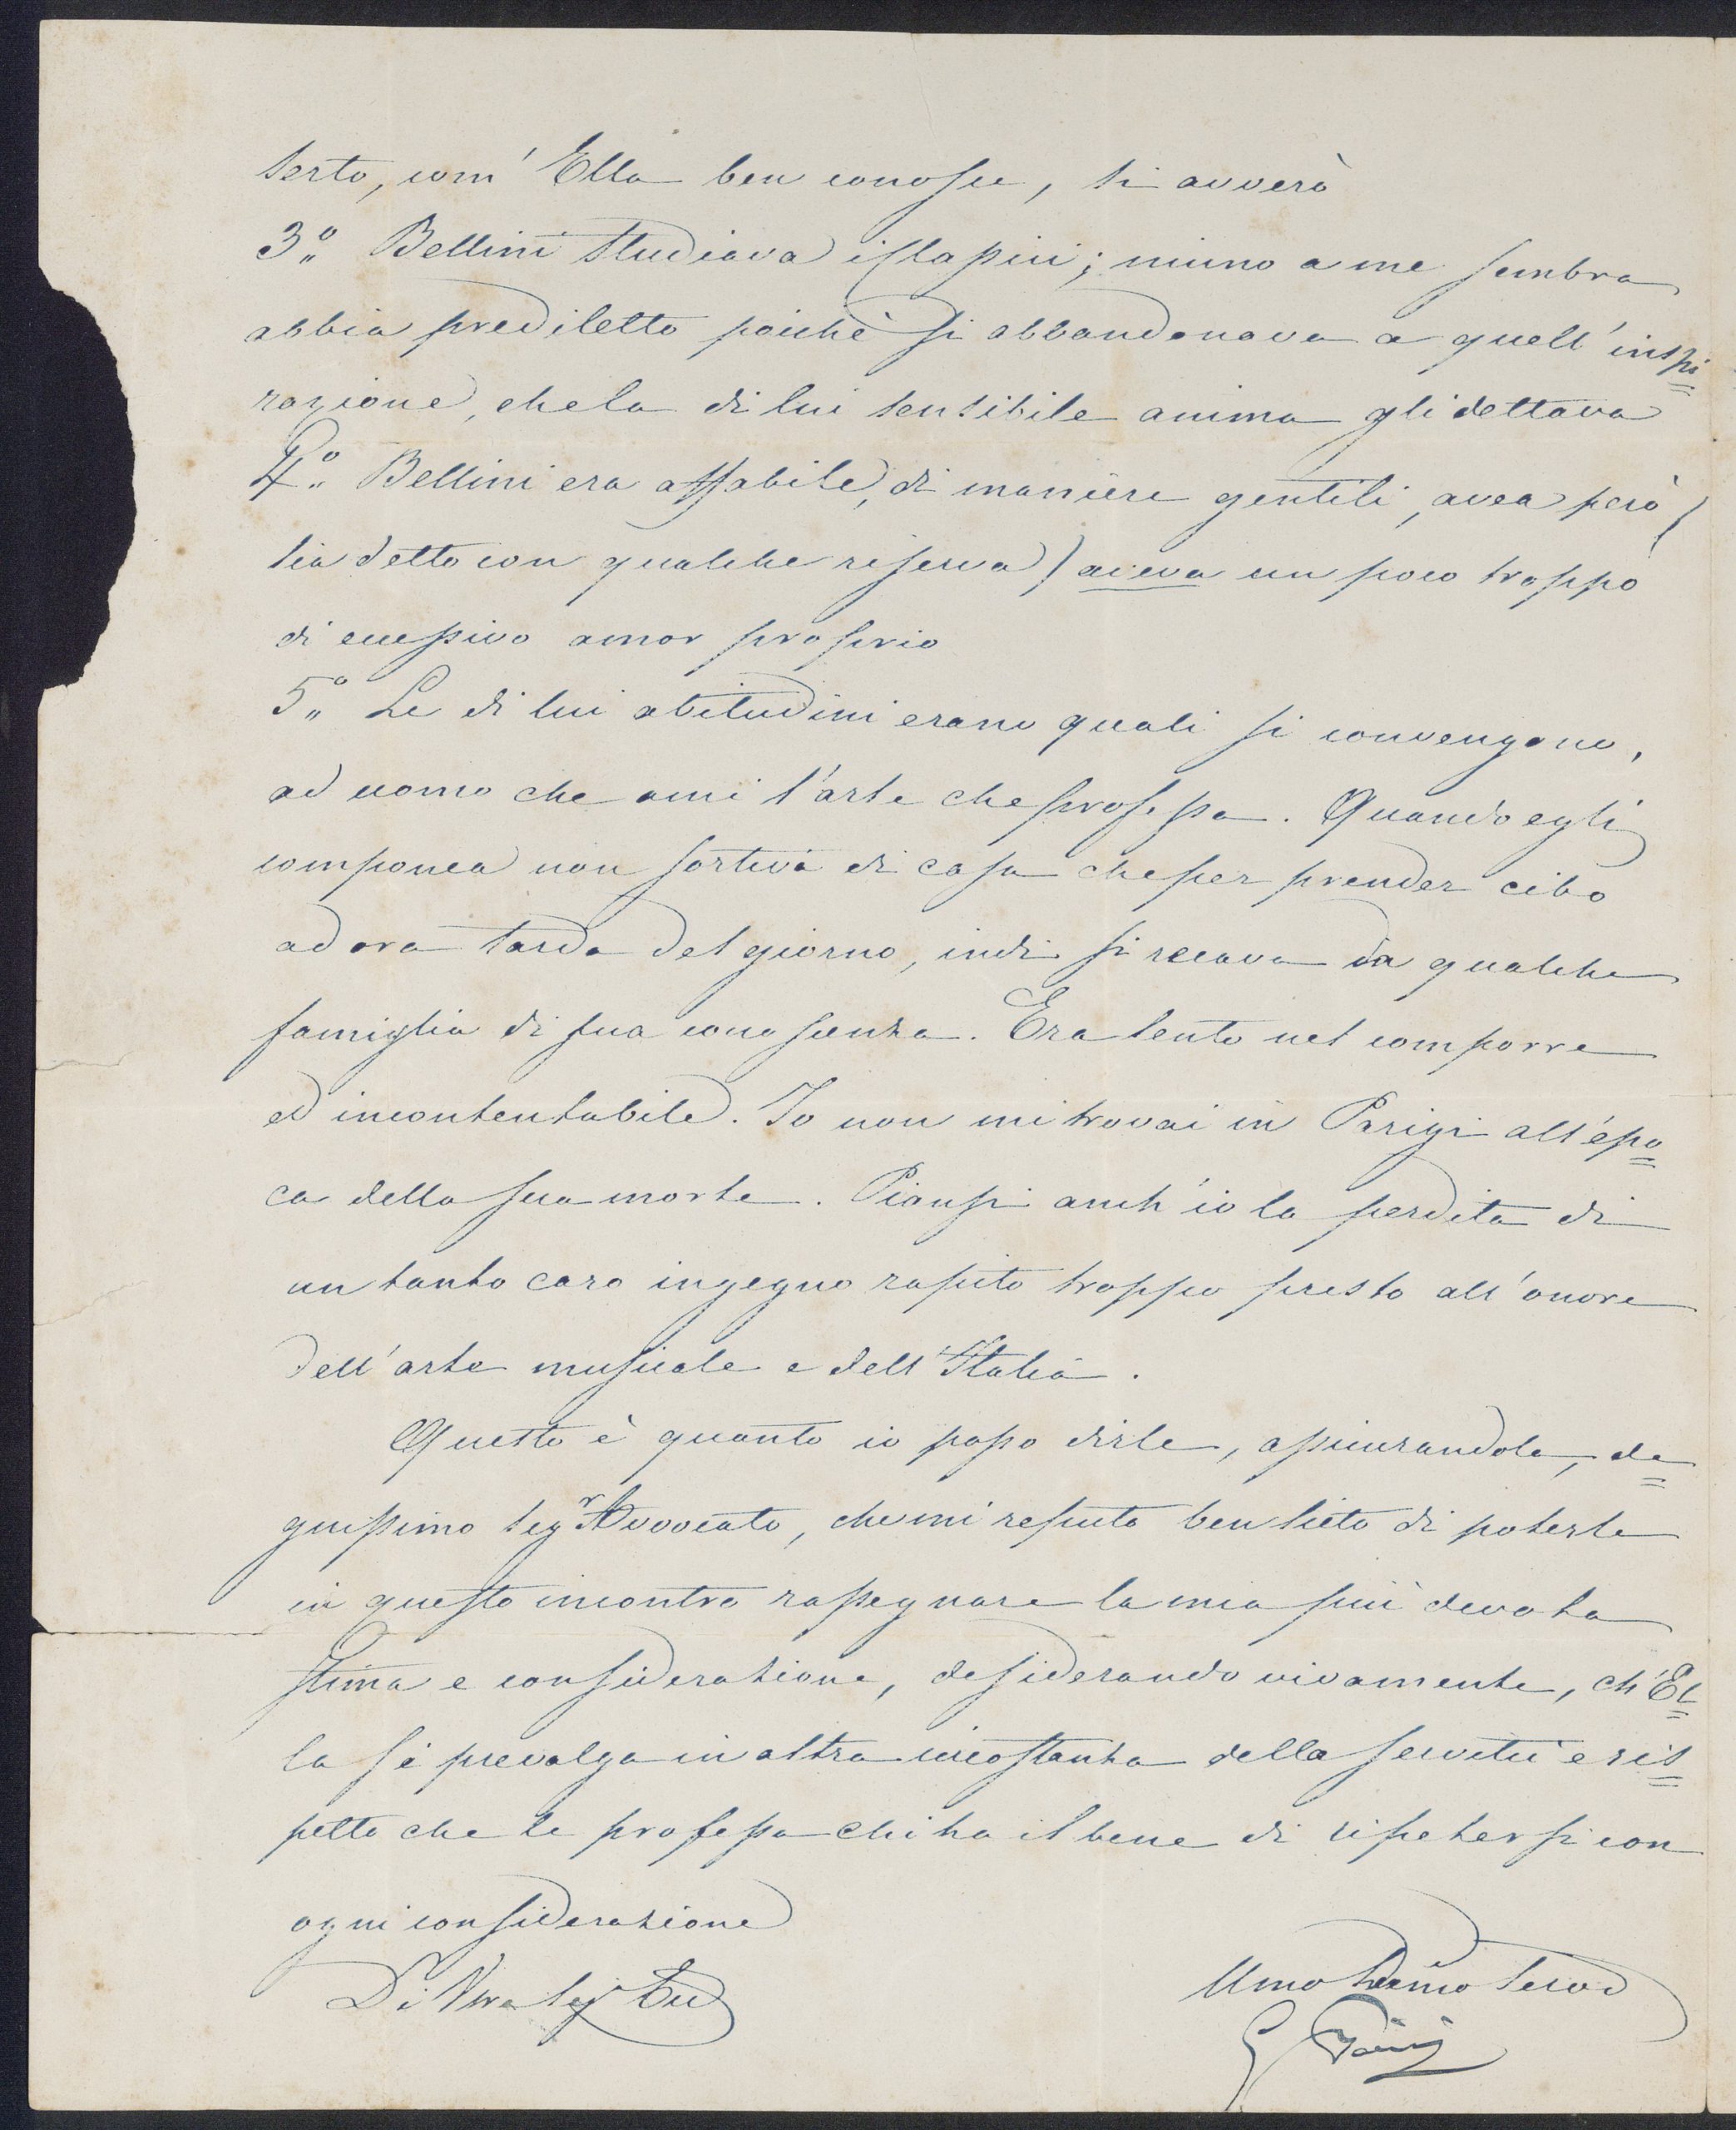 serto, com' Ella ben conosce, si avverò
3.º Bellini studiava i classici; niuno a me sembra
abbia prediletto poichè si abbandonava a quell' inspi=
razione, che la di lui sensibile anima gli dettava
4.º Bellini era affabile, di maniere gentili, avea però (
sia detto con qualche riserva) aveva un poco troppo
di eccessivo amor proprio
5.º Le di lui abitudini erano quali si convengono,
ad uomo che ami l'arte che professa. Quando egli
componea non sortiva di casa che per prender cibo
ad ora tarda del giorno, indi si recava da qualche
famiglia di sua conoscenza. Era lento nel comporre
ed incontentabile. Io non mi trovai in Parigi all'epo=
ca della sua morte. Piansi anch'io la perdita di
un tanto caro ingegno rapito troppo presto all'onore
dell'arte musicale e dell'Italia.
Questo è quanto io posso dirle, assicurandola, de=
gnissimo Sigr Avvocato, che mi reputo ben lieto di poterle
in questo incontro rassegnare la mia più devota
stima e considerazione, desiderando vivamente, ch'El=
la si prevalga in altra circostanza della servitù e ris=
petto che le professa chi ha il bene di ripetersi con
ogni considerazione
Di Vra Sig
Umo Servo
G